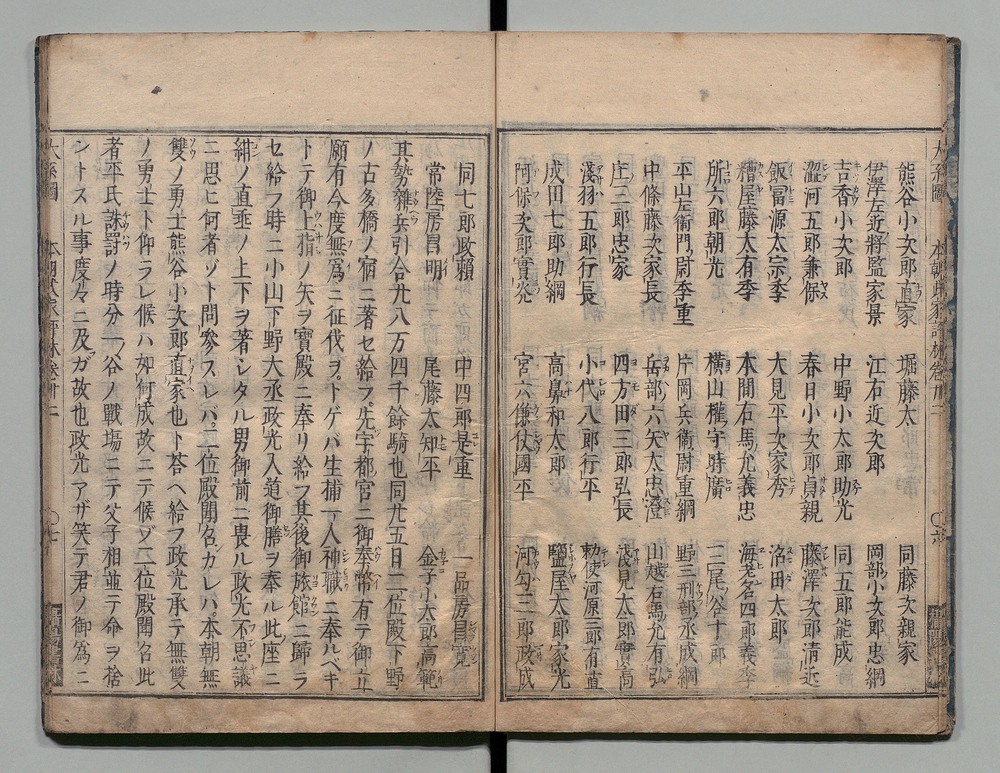 熊谷小次郎直家　堀藤太　同藤次親家
伊澤左近將監家景　江右近次郎　岡部小次郎忠綱
吉香小次郎　中野小太郎助光　同五郎能成
澀河五郎兼保　春日小次郎貞親　藤澤次郎清近
飯冨源太宗季　大見平次家秀　沼田太郎
糟屋藤太有季　本間右馬允義忠　海老名四郎義季
所六郎朝光　橫山權守時廣　三尾谷十郎
平山左衛門尉季重　片岡兵衛尉重綱　野三刑部丞成綱
中條藤次家長　岳部六矢太忠澄　山越右馬允有弘
庄三郎忠家　四方田三郎弘長　淺見太郎實高
淺羽五郎行長　小代八郎行平　勅使河原三郎有直
成田七郎助綱　高鼻和太郎　鹽屋太郎家光
阿保次郎實光　宮六傔仗國平　河勾三郎政成
同七郎政賴　中四郎是重　一品房昌寛
常陸房昌明　尾藤太知平　金子小太郎高範
其勢雜兵引合廿八万四千餘騎也同廿五日二位殿下野
ノ古多橋ノ宿ニ著セ給フ先宇都宮ニ御奉幣有テ御立
願有今度無爲ニ征伐ヲトゲバ生捕一人神職ニ奉ルベキ
トテ御上指ノ矢ヲ寶殿ニ奉リ給フ其後御旅館ニ歸ラ
セ給フ時ニ小山下野大丞政光入道御膳ヲ奉ル此座ニ
紺ノ直垂ノ上下ヲ著シタル男御前ニ畏ル政光不思議
ニ思ヒ何者ゾト問參スレバ二位殿聞召カレハ本朝無
雙ノ勇士熊谷小次郎直家也ト荅ヘ給フ政光承テ無雙
ノ勇士ト仰ラレ候ハ如何成故ニテ候ゾ二位殿聞召此
者平氏誅罸ノ時分一ノ谷ノ戰塲ニテ父子相並テ命ヲ捨
ントスル事度々ニ及ブガ故也政光アザ笑テ君ノ御爲ニ
大系圖　本朝武家評林卷廿二